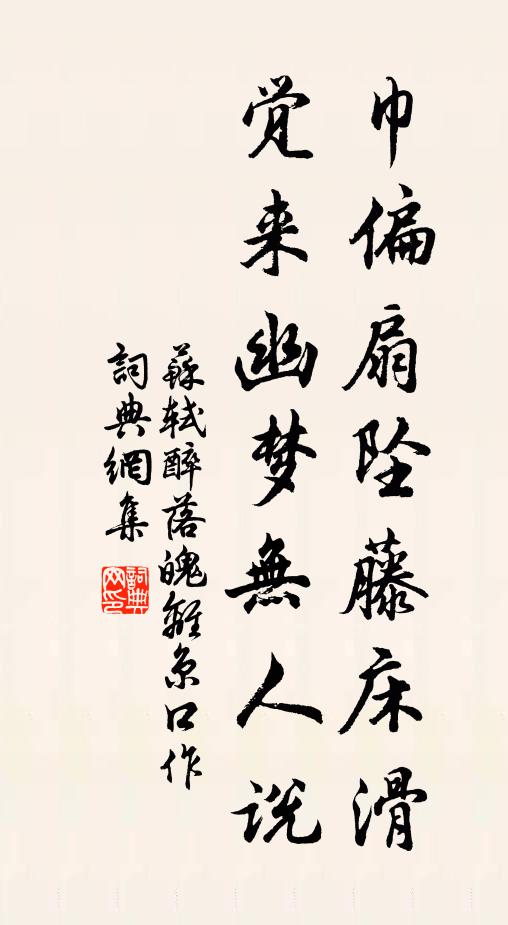 巾偏扇坠藤床滑
觉来幽梦無人説
蘇轼醉落魄離京口作
詞典網集
詞典網印